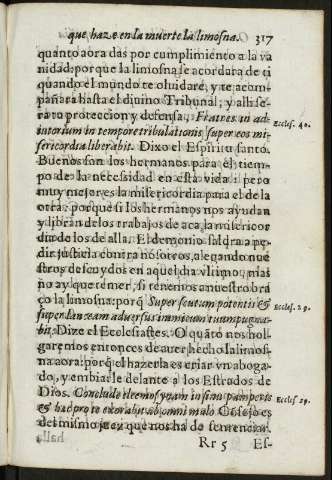 que haze en la muerte la limosna. 317
quanto aora das por cumplimiento a la va
nidad: porque la limosna se acordara de ti
quando el mundo te oluidare, y te acom-
pañara hasta el diuino Tribunal, y alli se-
ra tu proteccion y defensa, Fratres in ad-
iutorium in tempore tribulationis, super eos mi-
sericordia liberabit. Dixo el Espiritu santo.
Eccles. 40.
Buenos son los hermanos para el tiem-
po de la necessidad en esta vida: pero
muy mejor es la misericordia para el de la
otra: porque si los hermanos nos ayudan
y libran de los trabajos de aca, la misericor
dia de los de alla. El demonio saldra a pe-
dir justicia contra nosotros, alegando nue
stros descuydos en aquel dia vltimo, mas
no ay que temer, si tenemos a nuestro bra
ço la limosna: porq̃ Super scutum potentis &
super lanceam aduersus inimicum tuum pugna-
bit, Dize el Ecclesiastes. O quãto nos hol-
Eccles. 29.
garemos entonces de auer hecho la limos
na aora: porq̃ el hazerla es criar vn aboga
do, y embiarle delante a los Estrados de
Dios. Conclude eleemosynam in sinu pauperis
& hæc pro te exorabit ab omni malo Consejo es
Eccles 29.
del mismo juez que nos ha de sentenciar.
Rr 5 Es-